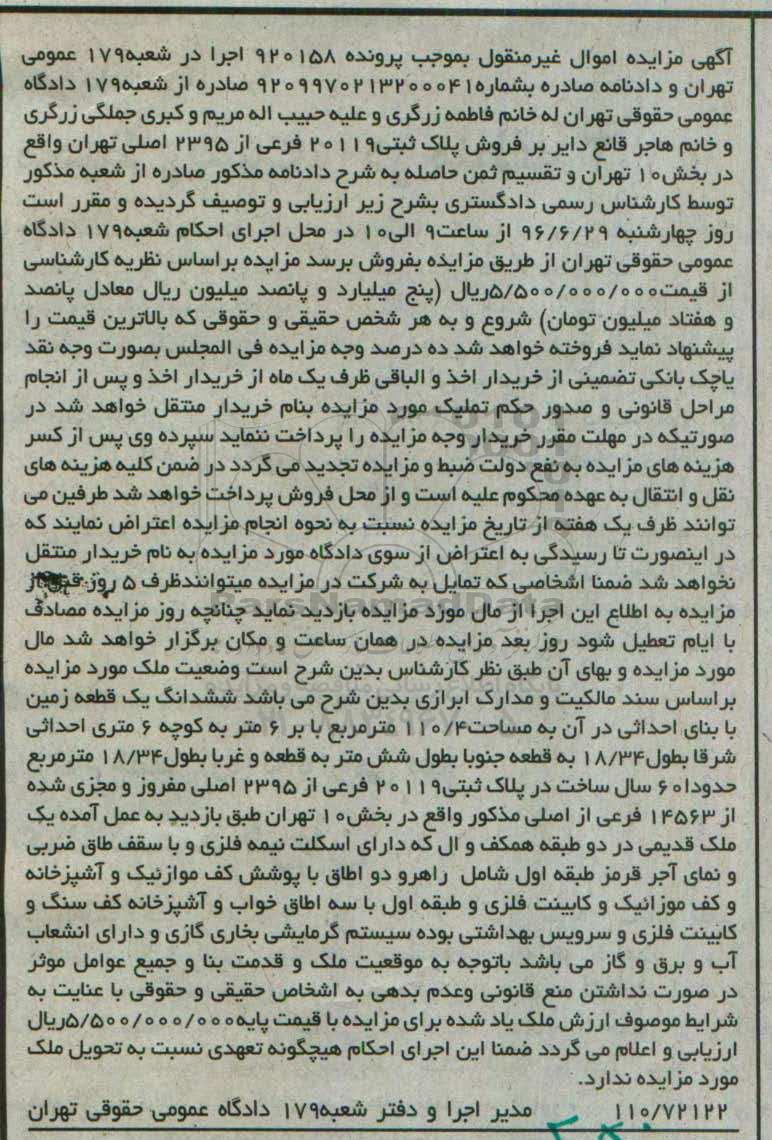 آگهی مزایده اموال غیرمنقول بموجب پرونده ۹۲۰۱۵۸ اجرا در شعبه۱۷۹ عمومی
تهران و دادنامه صادره بشماره۹۲۰۹۹۷۰۲۱۳۲۰۰۰۴۱ صادره از شعبه۱۷۹ دادگاه
عمومی حقوقی تهران له خانم فاطمه زرگری و علیه حبیب اله مریم و کبری جملگی زرگری
و خانم هاجر قانع دایر بر فروش پلاک ثبتی۲۰۱۱۹ فرعی از ۲۳۹۵ اصلی تهران واقع
در بخش۱۰ تهران و تقسیم ثمن حاصله به شرح دادنامه مذکور صادره از شعبه مذکور
توسط کارشناس رسمی دادگستری بشرح زیر ارزیابی و توصیف گردیده و مقرر است
روز چهارشنبه ۹۶/۶/۲۹ از ساعت۹ الی۱۰ در محل اجرای احکام شعبه۱۷۹ دادگاه
عمومی حقوقی تهران از طریق مزایده بفروش برسد مزایده براساس نظریه کارشناسی
از قیمت۵/۵۰۰/۰۰۰/۰۰۰ریال (پنج میلیارد و پانصد میلیون ریال معادل پانصد
و هفتاد میلیون تومان) شروع و به هر شخص حقیقی و حقوقی که بالاترین قیمت را
پیشنهاد نماید فروخته خواهد شد ده درصد وجه مزایده فی المجلس بصورت وجه نقد
یاچک بانکی تضمینی از خریدار اخذ و الباقی ظرف یک ماه از خریدار اخذ و پس از انجام
مراحل قانونی و صدور حکم تملیک مورد مزایده بنام خریدار منتقل خواهد شد در
صورتیکه در مهلت مقرر خریدار وجه مزایده را پرداخت ننماید سپرده وی پس از کسر
هزینه های مزایده به نفع دولت ضبط و مزایده تجدید می گردد در ضمن کلیه هزینه های
نقل و انتقال به عهده محکوم علیه است و از محل فروش پرداخت خواهد شد طرفین می
توانند ظرف یک هفته از تاریخ مزایده نسبت به نحوه انجام مزایده اعتراض نمایند که
در اینصورت تا رسیدگی به اعتراض از سوی دادگاه مورد مزایده به نام خریدار منتقل
نخواهد شد ضمنا اشخاصی که تمایل به شرکت در مزایده میتوانندظرف ۵ روز قبل از
مزایده به اطلاع این اجرا از مال مورد مزایده بازدید نماید چنانچه روز مزایده مصادف
با ایام تعطیل شود روز بعد مزایده در همان ساعت و مکان برگزار خواهد شد مال
مورد مزایده و بهای آن طبق نظر کارشناس بدین شرح است وضعیت ملک مورد مزایده
براساس سند مالکیت و مدارک ابرازی بدین شرح می باشد ششدانگ یک قطعه زمین
با بنای احداثی در آن به مساحت۱۱۰/۴ مترمربع با بر ۶ متر به کوچه ۶ متری احداثی
شرقا بطول۱۸/۳۴ به قطعه جنوبا بطول شش متر به قطعه و غربا بطول۱۸/۳۴ مترمربع
حدودا۶۰ سال ساخت در پلاک ثبتی۲۰۱۱۹ فرعی از ۲۳۹۵ اصلی مفروز و مجزی شده
از ۱۴۵۶۳ فرعی از اصلی مذکور واقع در بخش۱۰ تهران طبق بازدید به عمل آمده یک
ملک قدیمی در دو طبقه همکف و ال که دارای اسکلت نیمه فلزی و با سقف طاق ضربی
و نمای آجر قرمز طبقه اول شامل راهرو دو اطاق با پوشش کف موازئیک و آشپزخانه
و کف موزائیک و کابینت فلزی و طبقه اول با سه اطاق خواب و آشپزخانه کف سنگ و
کابینت فلزی و سرویس بهداشتی بوده سیستم گرمایشی بخاری گازی و دارای انشعاب
آب و برق و گاز می باشد باتوجه به موقعیت ملک و قدمت بنا و جمیع عوامل موثر
در صورت نداشتن منع قانونی وعدم بدهی به اشخاص حقیقی و حقوقی با عنایت به
شرایط موصوف ارزش ملک یاد شده برای مزایده با قیمت پایه۵/۵۰۰/۰۰۰/۰۰۰ریال
ارزیابی و اعلام می گردد ضمنا این اجرای احکام هیچگونه تعهدی نسبت به تحویل ملک
مورد مزایده ندارد.
۱۱۰/۷۲۱۲۲ مدیر اجرا و دفتر شعبه۱۷۹ دادگاه عمومی حقوقی تهران